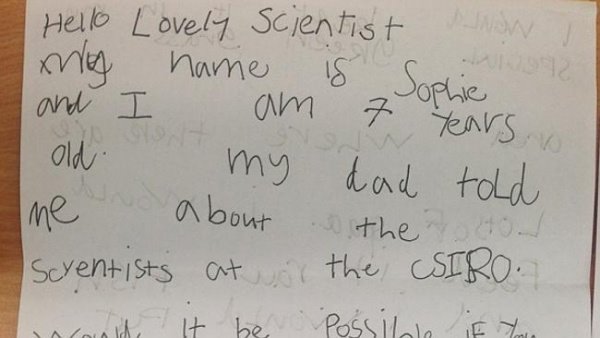 Hello Lovely Scientist
my name is Sophie
and I am 7 Years
old. my dad told
me about the
Scyentists at the CSIRO.
Would it be Possible if You